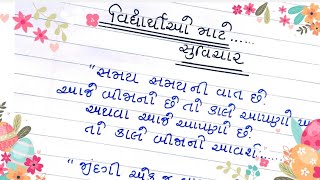 વિદ્યાર્થીઓ માટે......
સુવિચાર
"સમય સમયની વાત છે.
આજે બીજાનો છે તો કાલે આપણો
અથવા આજે આપણો છે.
તો કાલે બીજાનો આવશે.......
"જીંદગી